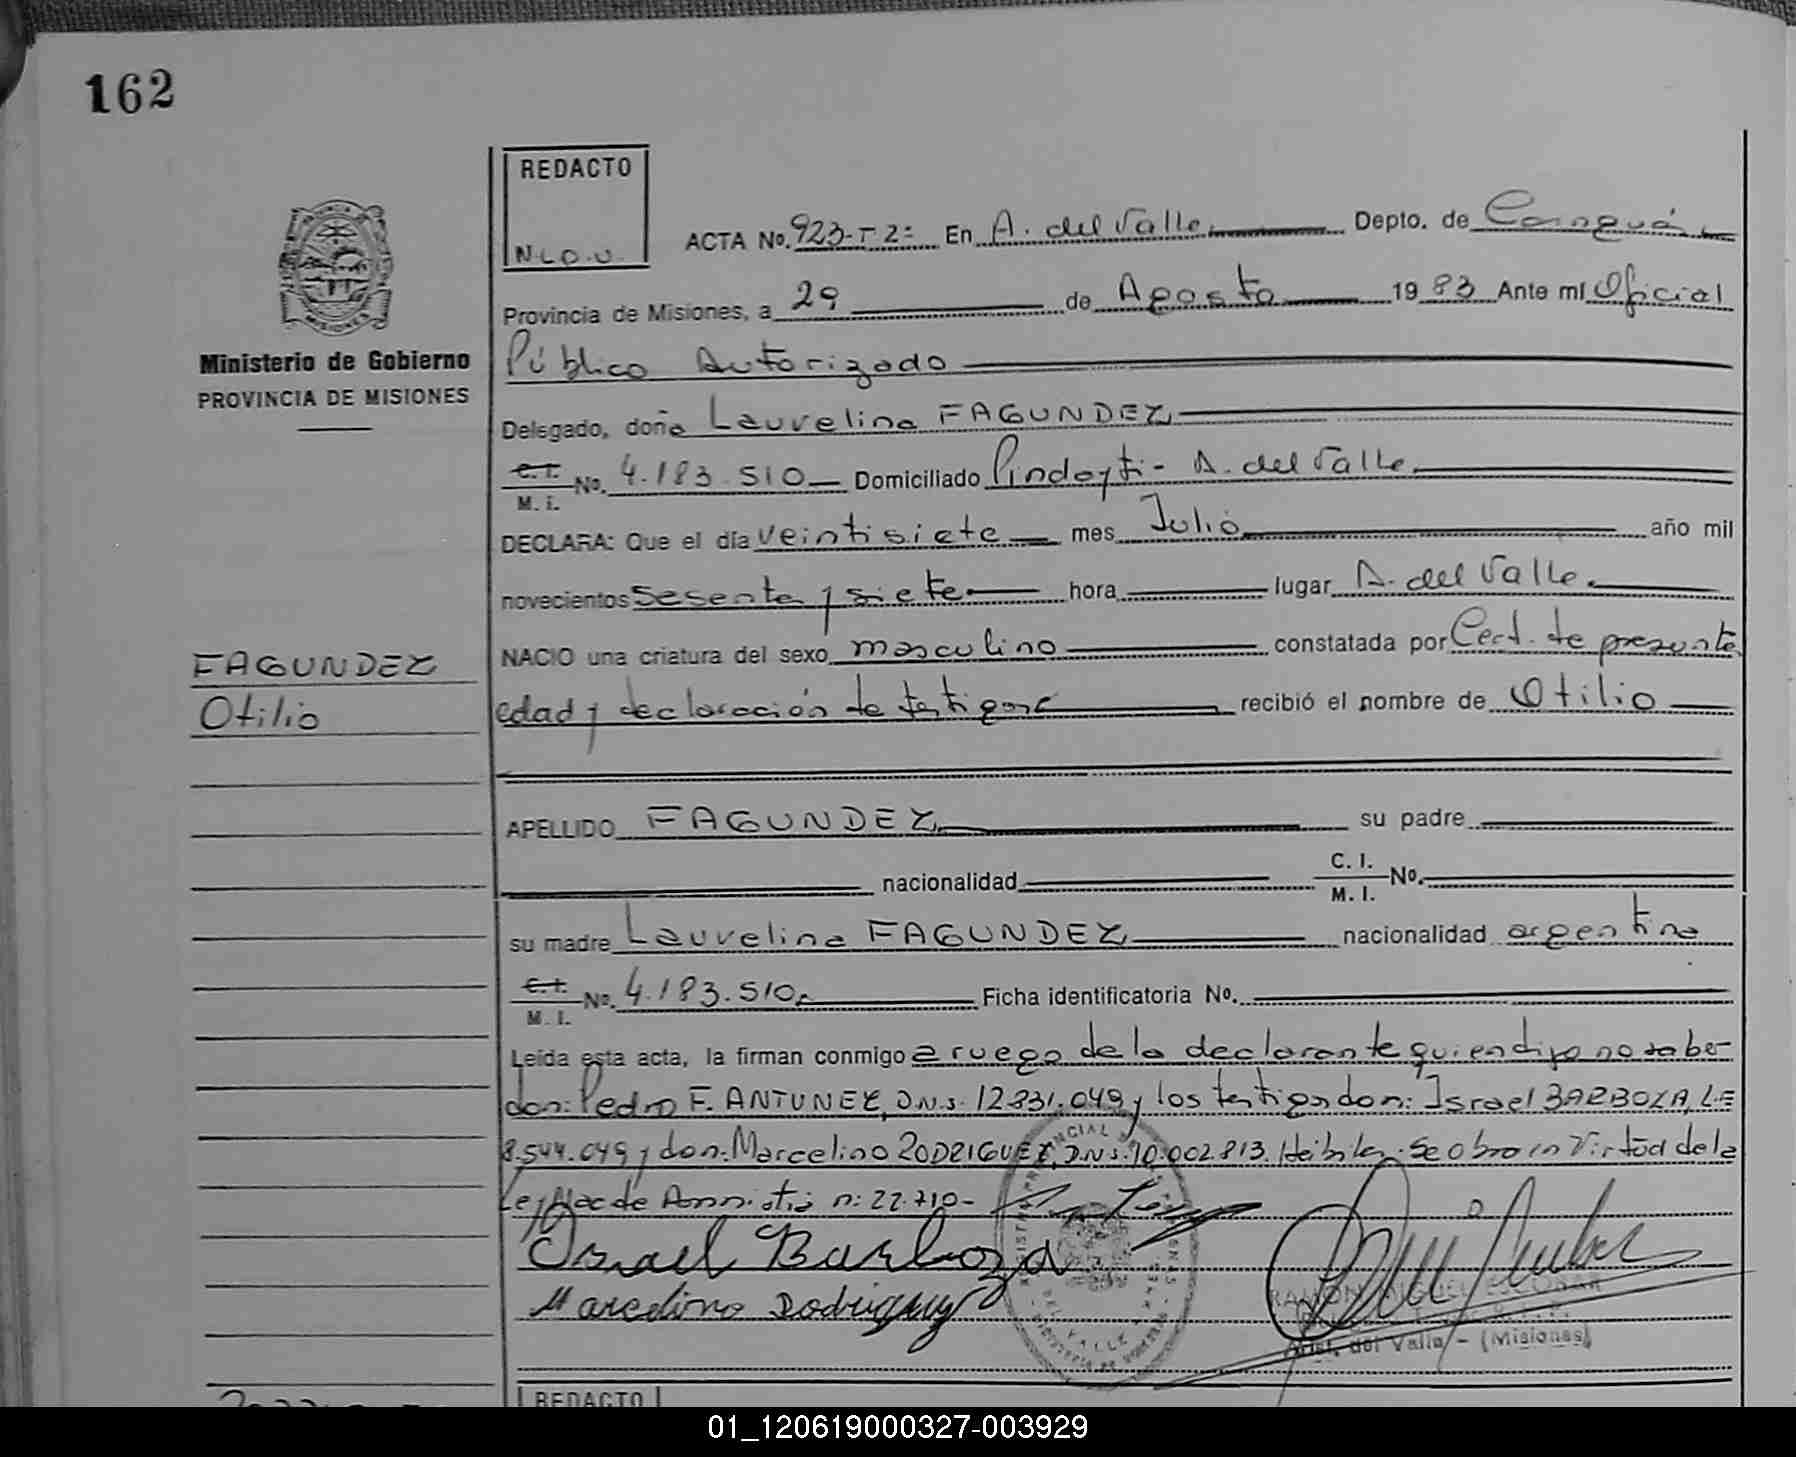 162
REDACTO
N.L.O.U.
ACTA No. 923-T 2= En A. del Valle Depto. de Cainguás
Provincia de Misiones, a 29 de Agosto 1983 Ante mí Oficial
Ministerio de Gobierno
PROVINCIA DE MISIONES
Público Autorizado
Delegado, doña Laurelina FAGUNDEZ
C.I. M.I. No. 4.183.510 Domiciliado Pindaytí - A. del Valle
DECLARA: Que el día veintisiete mes Julio año mil
novecientos sesenta y siete hora lugar A. del Valle
NACIO una criatura del sexo masculino constatada por Cert. de presunta
edad y declaración de testigos recibió el nombre de Otilio
FAGUNDEZ
Otilio
APELLIDO FAGUNDEZ su padre
nacionalidad C. I. M. I. No.
su madre Laurelina FAGUNDEZ nacionalidad argentina
C.I. M.I. No. 4.183.510 Ficha identificatoria No.
Leída esta acta, la firman conmigo a ruego de la declarante quien dijo no saber
don: Pedro F. ANTUNEZ, D.N.I. 12.831.049 y los testigos don: Israel BARBOZA, L.E
8.544.049 y don: Marcelino RODRIGUEZ, D.N.I. 10.002.813. Hábiles. Se obro en Virtud de la
Ley Nac de Amnistia n: 22.710-
Israel Barboza
Marcelino Rodriguez
RAMON ESCOBAR
Arist. del Valle - (Misiones)
REDACTO
01_120619000327-003929